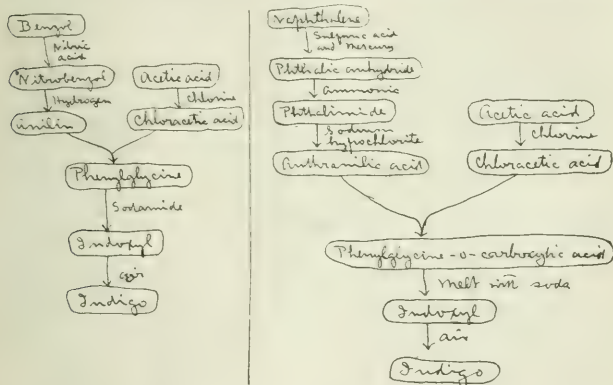 Benzol
Nitric
acid
Nitrobenzol
Hydrogen
Anilin
Acetic acid
chlorine
Chloracetic acid
Phenylglycine
Sodamide
Indoxyl
air
Indigo
Naphthalene
Sulfuric acid
and mercury
Phthalic anhydride
ammonia
Phthalimide
Sodium
hypochlorite
Anthranilic acid
Acetic acid
chlorine
Chloracetic acid
Phenylglycine-o-carboxylic acid
Melt with soda
Indoxyl
air
Indigo